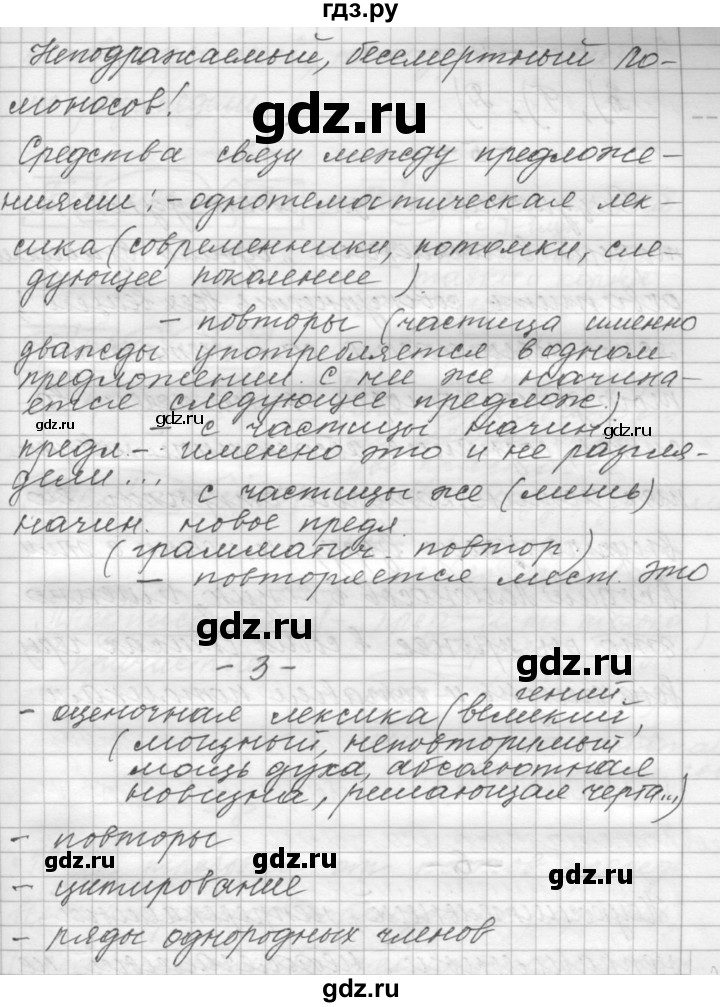 гдз.ру
Неподражаемый, бессмертный Ло-
моносов!
gdz.ru
Средства связи между предложе-
ниями: - однотематическая лек-
сика (современники, потомки, сле-
дующее поколение)
- повторы (частица именно
дважды употребляется в одном
предложении. С ни же начина-
ется следующее предлож.)
gdz.ru
gdz.ru
- с частицы начин.
предл. - именно это и не разгля-
дели...
с частицы же (лишь)
начин. новое предл.
(грамматич. повтор.)
- повторяется мест. это
gdz.ru
- 3 -
gdz.ru
гений
- оценочная лексика (великий,
(мощный, неповторимый
мощь духа, абсолютная
новизна, решающая черта...)
- повторы
gdz.ru
gdz.ru
- цитирование
- ряды однородных членов
gdz.ru